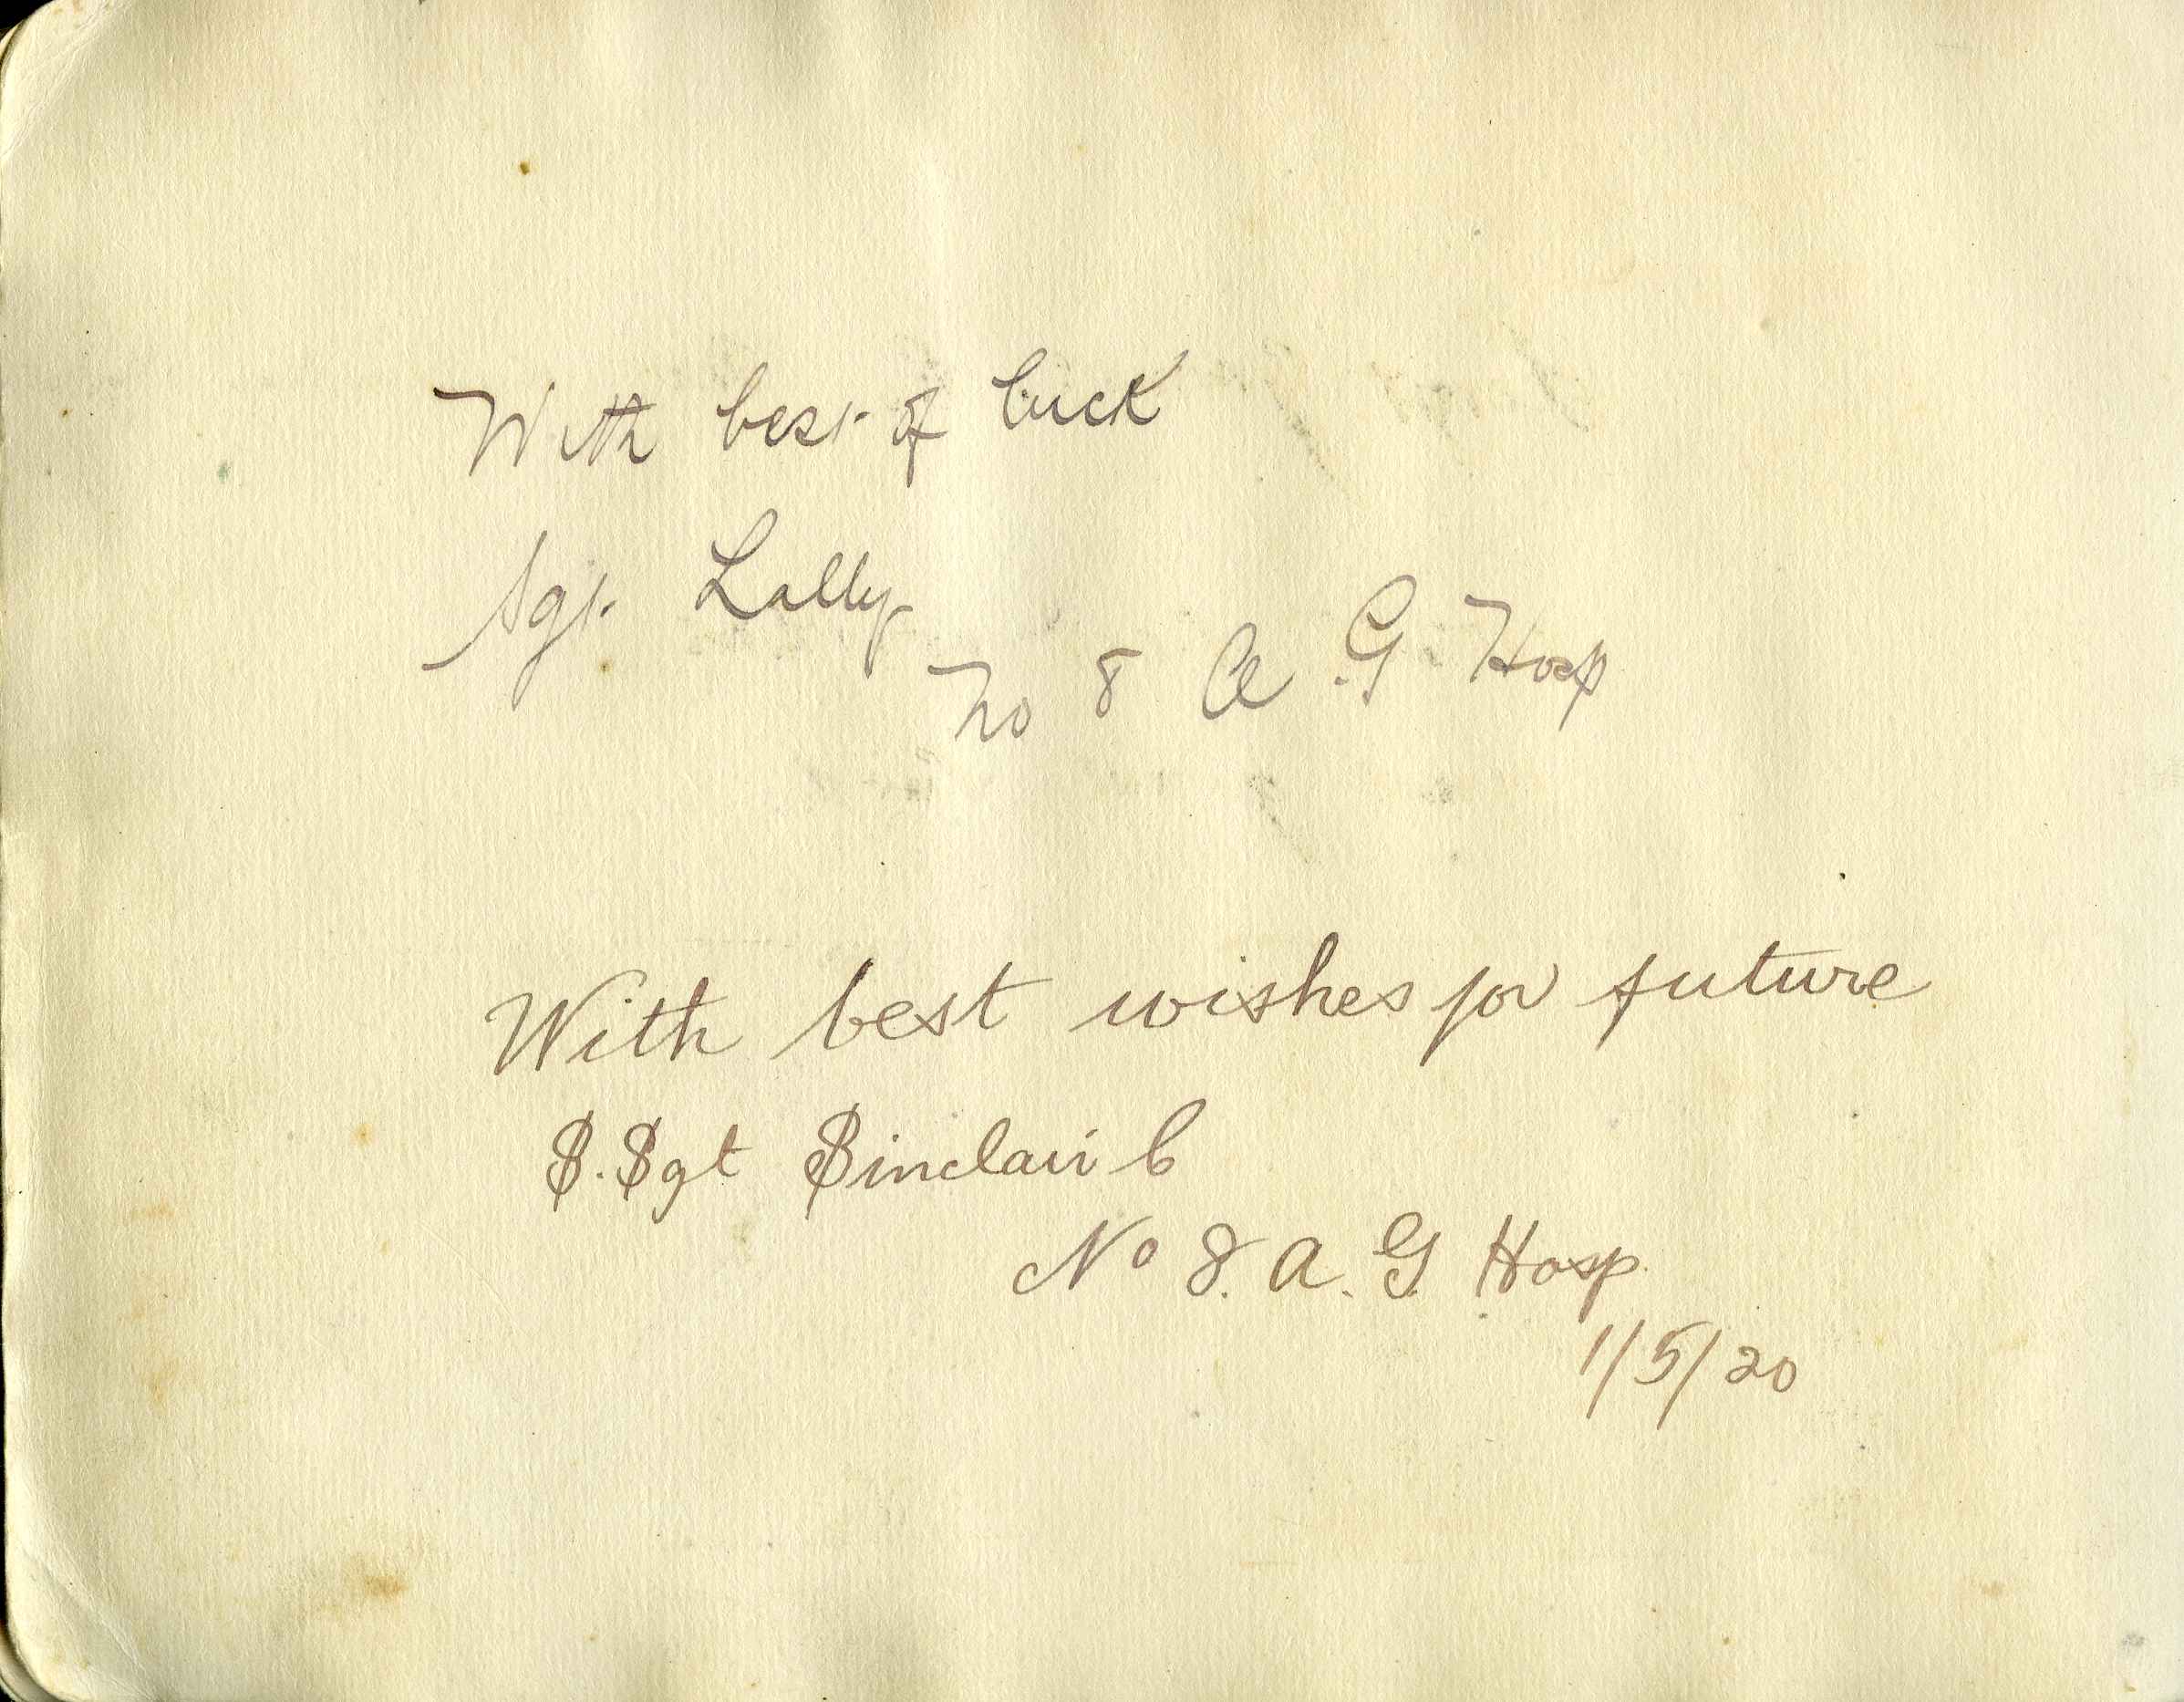 With best of luck
Sgt. Lally
No 8 A. G. Hosp
With best wishes for future
S. Sgt Sinclair C
No 8. A. G. Hosp.
1/5/20